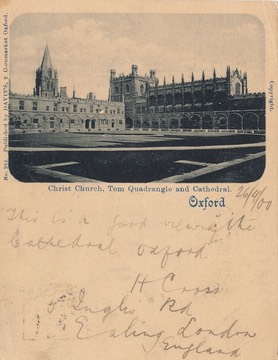 No. 151. Published by DAVIS'S, 2 Cornmarket Oxford.
Copyright.
Christ Church, Tom Quadrangle and Cathedral.
Oxford
26/4/00
This is a good view of the
Cathedral Oxford
H Cross
Inglis Rd
Ealing London
England